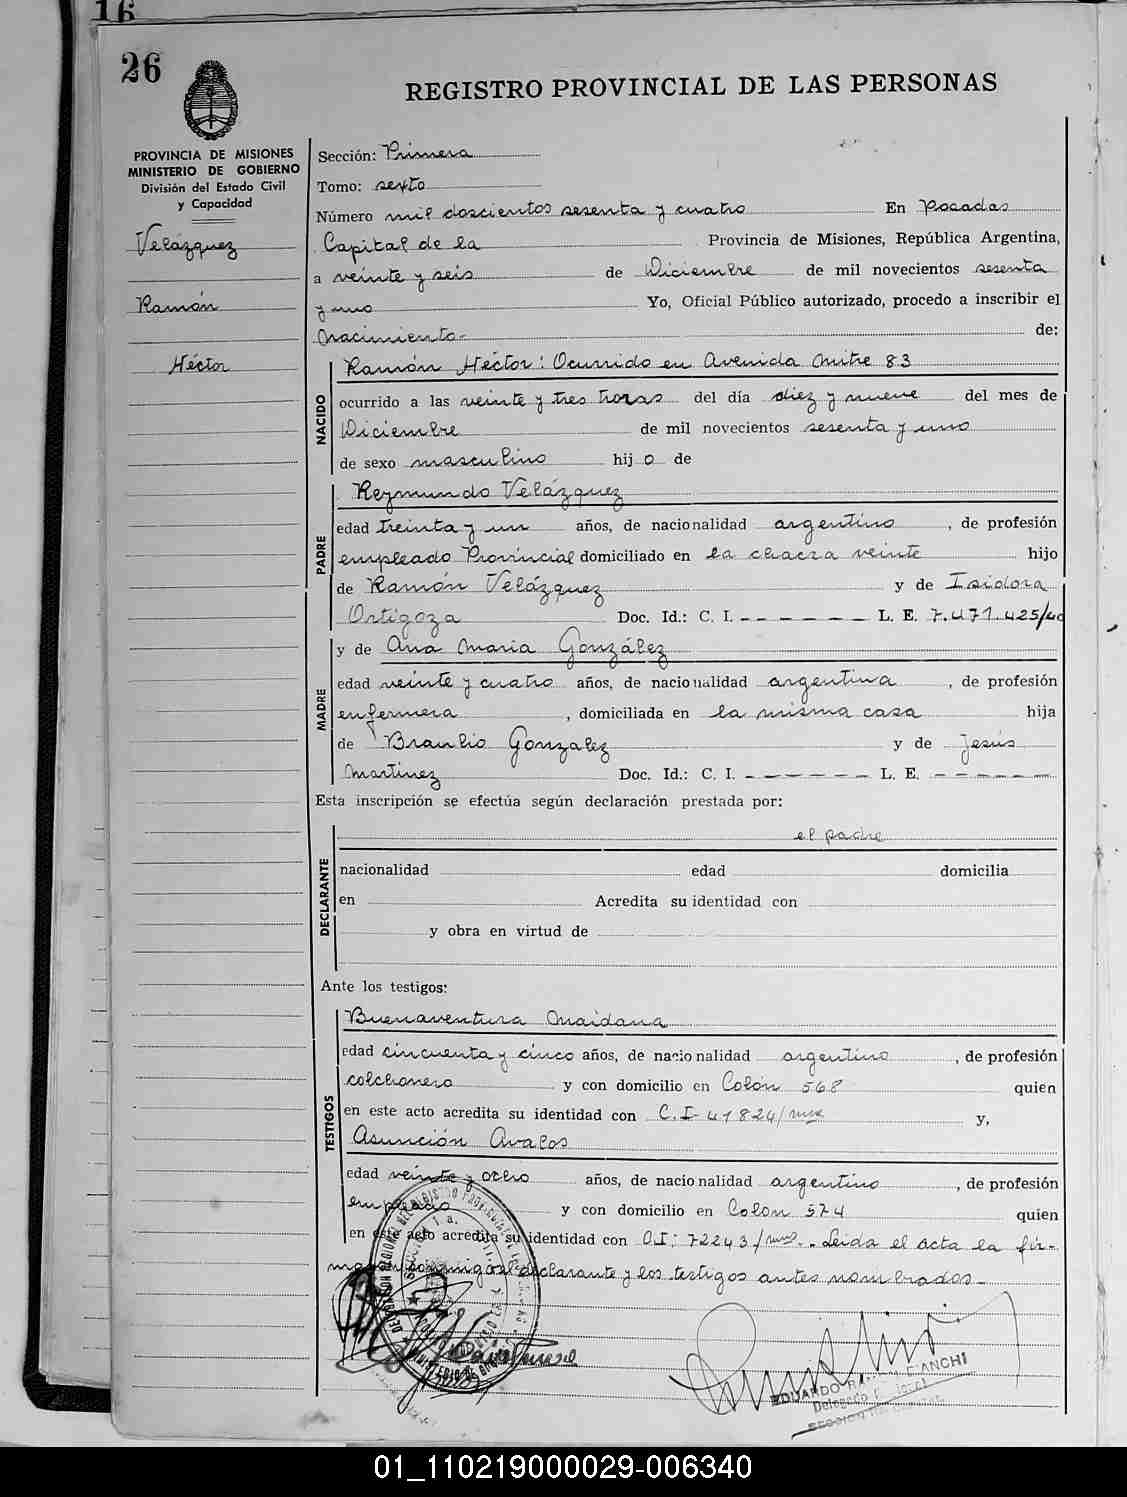 16
26
REGISTRO PROVINCIAL DE LAS PERSONAS
PROVINCIA DE MISIONES
MINISTERIO DE GOBIERNO
División del Estado Civil
y Capacidad
Velázquez
Ramón
Héctor
Sección: Primera
Tomo: sexto
Número mil doscientos sesenta y cuatro En Posadas
Capital de la Provincia de Misiones, República Argentina,
a veinte y seis de Diciembre de mil novecientos sesenta
y uno Yo, Oficial Público autorizado, procedo a inscribir el
Nacimiento.- de:
NACIDO
Ramón Héctor: Ocurrido en Avenida Mitre 83
ocurrido a las veinte y tres horas del día diez y nueve del mes de
Diciembre de mil novecientos sesenta y uno
de sexo masculino hij o de
PADRE
Reymundo Velázquez
edad treinta y un años, de nacionalidad argentino, de profesión
empleado Provincial domiciliado en la chacra veinte hijo
de Ramón Velázquez y de Isidora
Ortigoza Doc. Id.: C. I. - - - - - - L. E. 7.471.425/40
MADRE
y de Ana Maria González
edad veinte y cuatro años, de nacionalidad argentina, de profesión
enfermera, domiciliada en la misma casa hija
de Braulio Gonzalez y de Jesús
Martinez Doc. Id.: C. I. - - - - - - L. E. - - - - - -
Esta inscripción se efectúa según declaración prestada por:
DECLARANTE
el padre
nacionalidad edad domicilia
en Acredita su identidad con
y obra en virtud de
Ante los testigos:
TESTIGOS
Buenaventura Maidana
edad cincuenta y cinco años, de nacionalidad argentino, de profesión
colchonero y con domicilio en Colón 568 quien
en este acto acredita su identidad con C.I- 41824/mnes y,
Asunción Avalos
edad veinte y ocho años, de nacionalidad argentino, de profesión
empleado y con domicilio en Colon 574 quien
en este acto acredita su identidad con C.I: 72243/mnes.. Leida el acta la fir-
man conmigo el declarante y los testigos antes nombrados.-
EDUARDO D'ANCHI
Delegado
SECCION
01_110219000029-006340